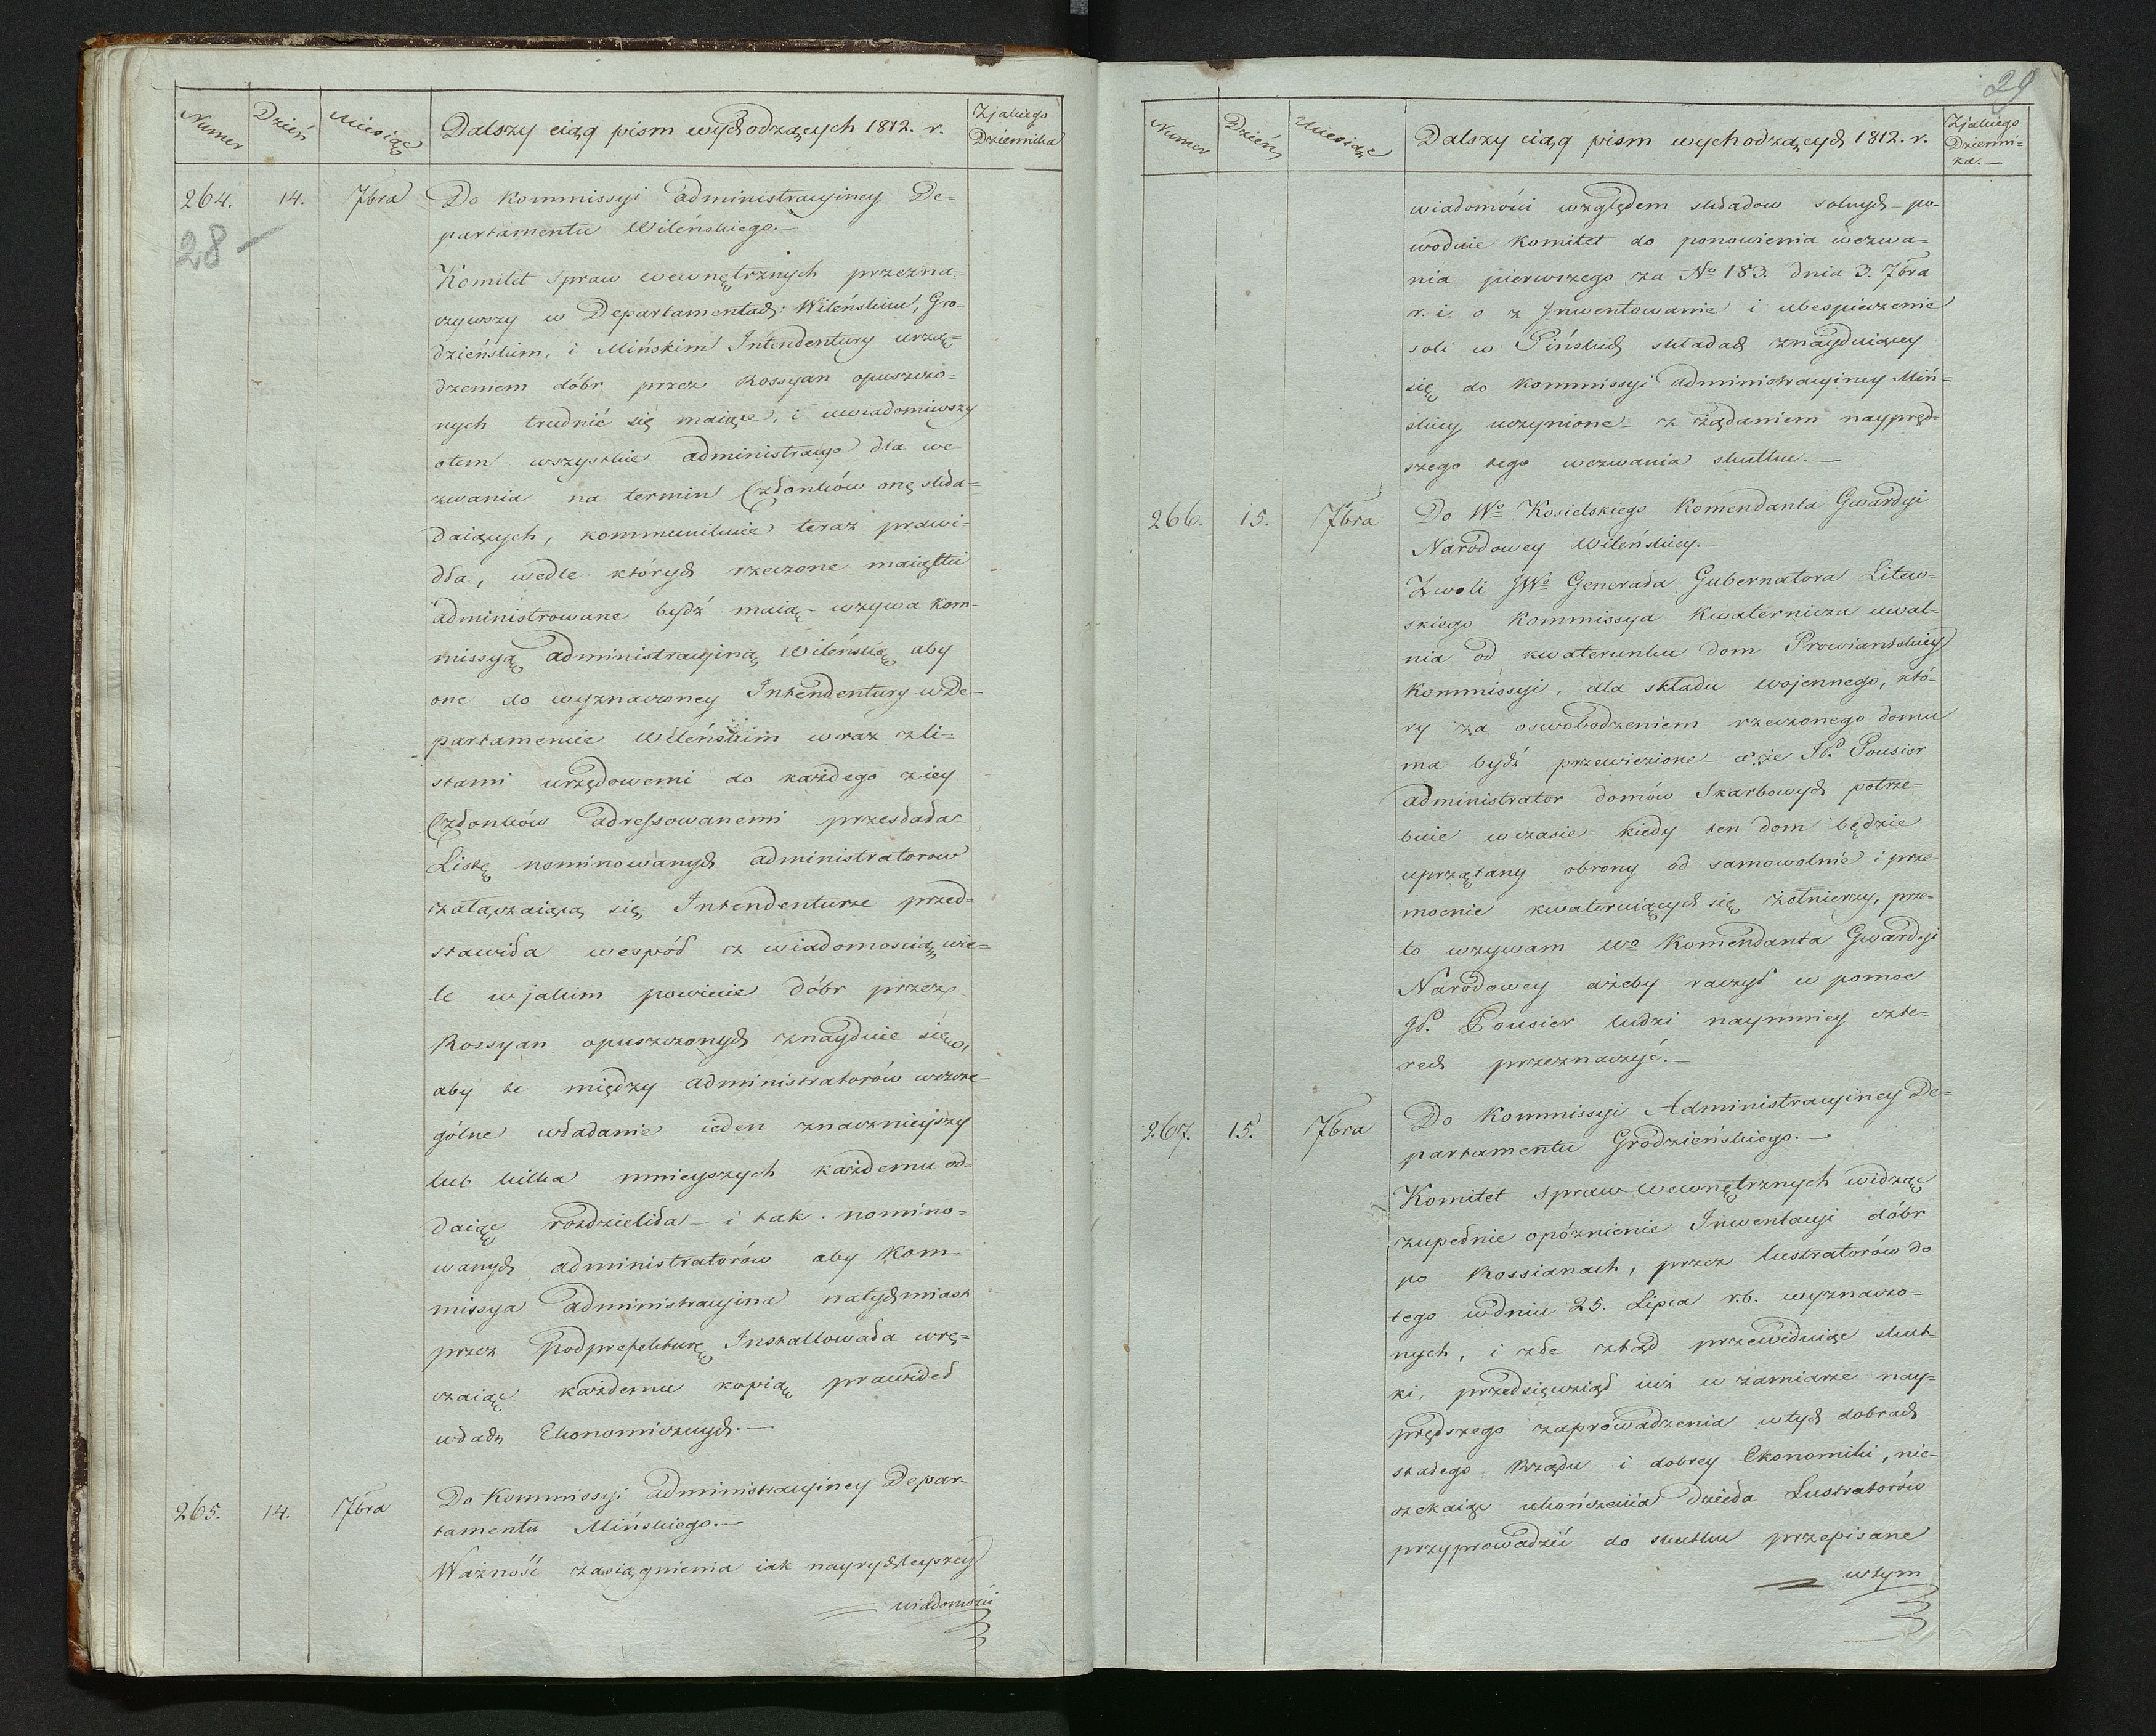 Numer Dzień Miesiąc Dalszy ciąg pism wychodzących 1812. r. Zjakiego Dziennika
264. 14. 7bra Do Kommissyi administracyiney De-
28 partamentu Wileńskiego.-
Komitet spraw wewnętrznych przezna-
czywszy w Departamentach: Wileńskim, Gro-
dzieńskim, i Mińskim Intendentury urzą-
dzeniem dóbr przez Rossyan opuszczo-
nych trudnić się maiące, i uwiadomiwszy
otem wszystkie administracye dla we-
zwania na termin Członków onę skła-
daiących, kommunikuie teraz prawi-
dła, wedle których rzeczone maiątki
administrowane bydź maią - wzywa Kom-
missyą administracyiną Wileńską aby
one do wyznaczoney Intendentury w De-
partamencie Wileńskim wraz zli-
stami urzędowemi do każdego ziey
Członków adressowanemi przesłała-
Listę nominowanych administratorow
załączaiącą się Intendenturze przed-
stawiła wespół z wiadomoscią wie-
le w jakim powiecie dóbr przez
Rossyan opuszczonych znayduie się
aby te między administratorów wszcze-
gólne władanie ieden znacznieyszy
lub kilka mnieyszych każdemu od-
daiąc rozdzieliła - i tak nomino-
wanych administratorów aby Kom-
missya administracyina natychmiast
przez Podprefekturę Installowała wrę-
czaiąc każdemu kopią prawideł
władz Ekonomicznych.-
265. 14. 7bra Do Kommissyi administracyiney Depar-
tamentu Mińskiego.-
Ważność zasiągnienia iak nayrychleyszey
wiadomości
29
Numer Dzień Miesiąc Dalszy ciąg pism wychodzących 1812. r. Zjakiego Dzienni-
ka.-
wiadomości względem składow solnych po-
woduie Komitet do ponowienia wezwa-
nia pierwszego za No 183. dnia 3. 7bra
r. i. o z Inwentowanie i ubespieczenie
soli w Pińskich składach znayduiącey
się do Kommissyi administracyiney Miń-
skiey uczynione - z żądaniem naypręd-
szego tego wezwania skutku.-
266. 15. 7bra Do Wo Kosielskiego Komendanta Gwardyi
Narodowey Wileńskiey.-
Zwoli JWo Generała Gubernatora Litew-
skiego Kommissya Kwaternicza uwal-
nia od kwaterunku dom Prowiantskiey
Kommissyi, dla składu wojennego, któ-
ry za oswobodzeniem rzeczonego domu
ma bydź przewiezione - a że JP. Pousier
administrator domów Skarbowych potrze-
buie wczasie kiedy ten dom będzie
uprzątany obrony od samowolnie i prze-
mocnie kwateruiących się żołnierzy, prze-
to wzywam Wo Komendanta Gwardyi
Narodowey ażeby raczył w pomoc
JP. Pousier ludzi naymniey czte-
rech przeznaczyć.-
267. 15. 7bra Do Kommissyi Administracyiney De-
partamentu Grodzieńskiego.-
Komitet spraw wewnętrznych widząc
zupełnie opóźnienie Inwentacyi dóbr
po Rossianach, przez lustratorów do
tego wdniu 25. Lipca r. b. wyznaczo-
nych, i złe ztąd przewiduiąc skut-
ki, przedsięwziął iuż w zamiarze nay-
prędszego zaprowadzenia wtych dobrach
stałego Rządu i dobrey Ekonomiki, nie-
czekaiąc ukończenia dzieła Lustratorów
przyprowadzić do skutku przepisane
wtym